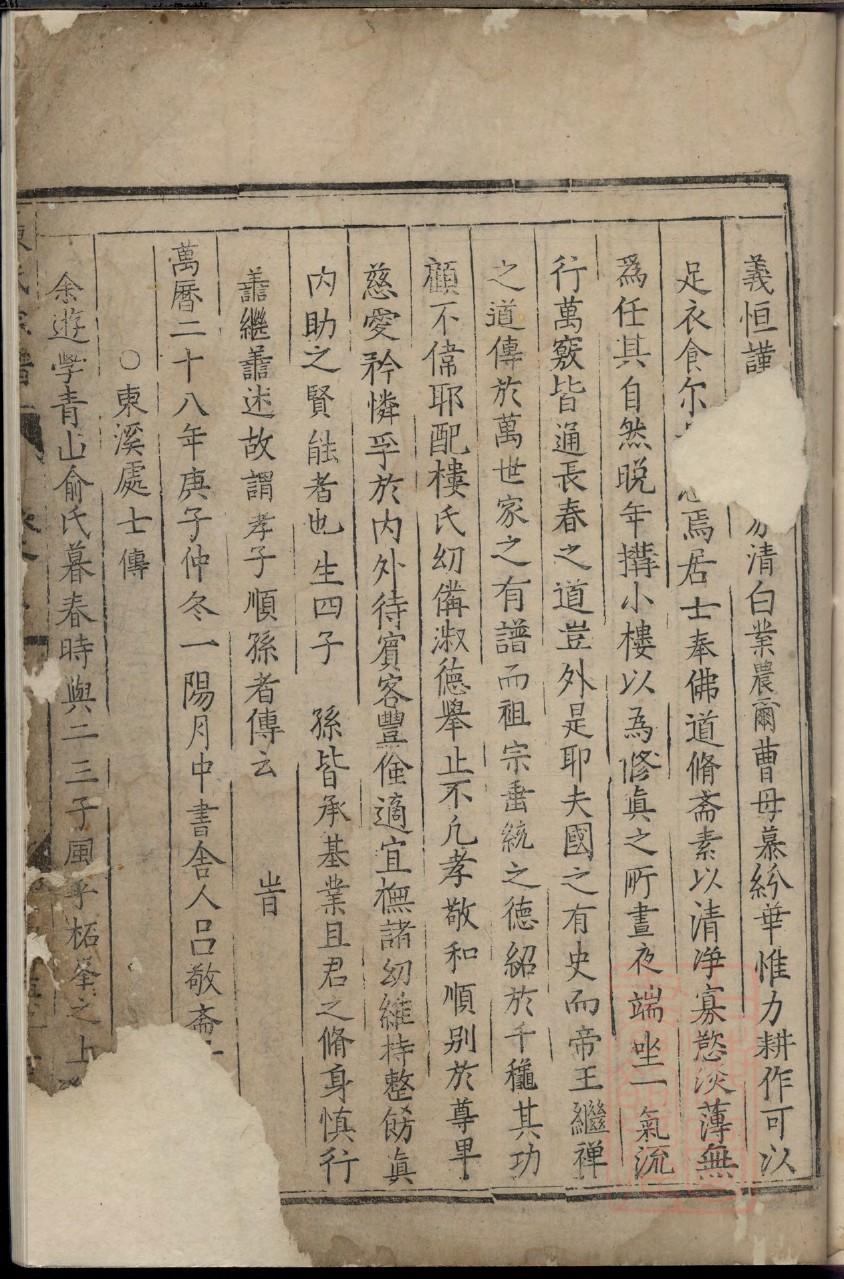 義恒謹清白業農爾曹毋慕紛華惟力耕作可以
足衣食尔焉居士奉佛道脩斋素以清净寡慾淡薄無
爲任其自然晚年搆小樓以爲修真之所晝夜端坐一氣流
行萬竅皆通長春之道豈外是耶夫國之有史而帝王繼禅
之道傳於萬世家之有譜而祖宗垂統之德紹於千穐其功
顧不偉耶配樓氏幼備淑德舉止不凢孝敬和順别於尊卑
慈愛矜憐孚於内外待賓客豐儉適宜撫諸幼維持整飭真
内助之賢能者也生四子 孫皆承基業且君之脩身慎行
譱繼譱述故謂孝子順孫者傳云 旹
萬曆二十八年庚子仲冬一陽月中書舍人吕敬斋
○東溪處士傳
余遊学青山俞氏暮春時與二三子風乎柘峯之上